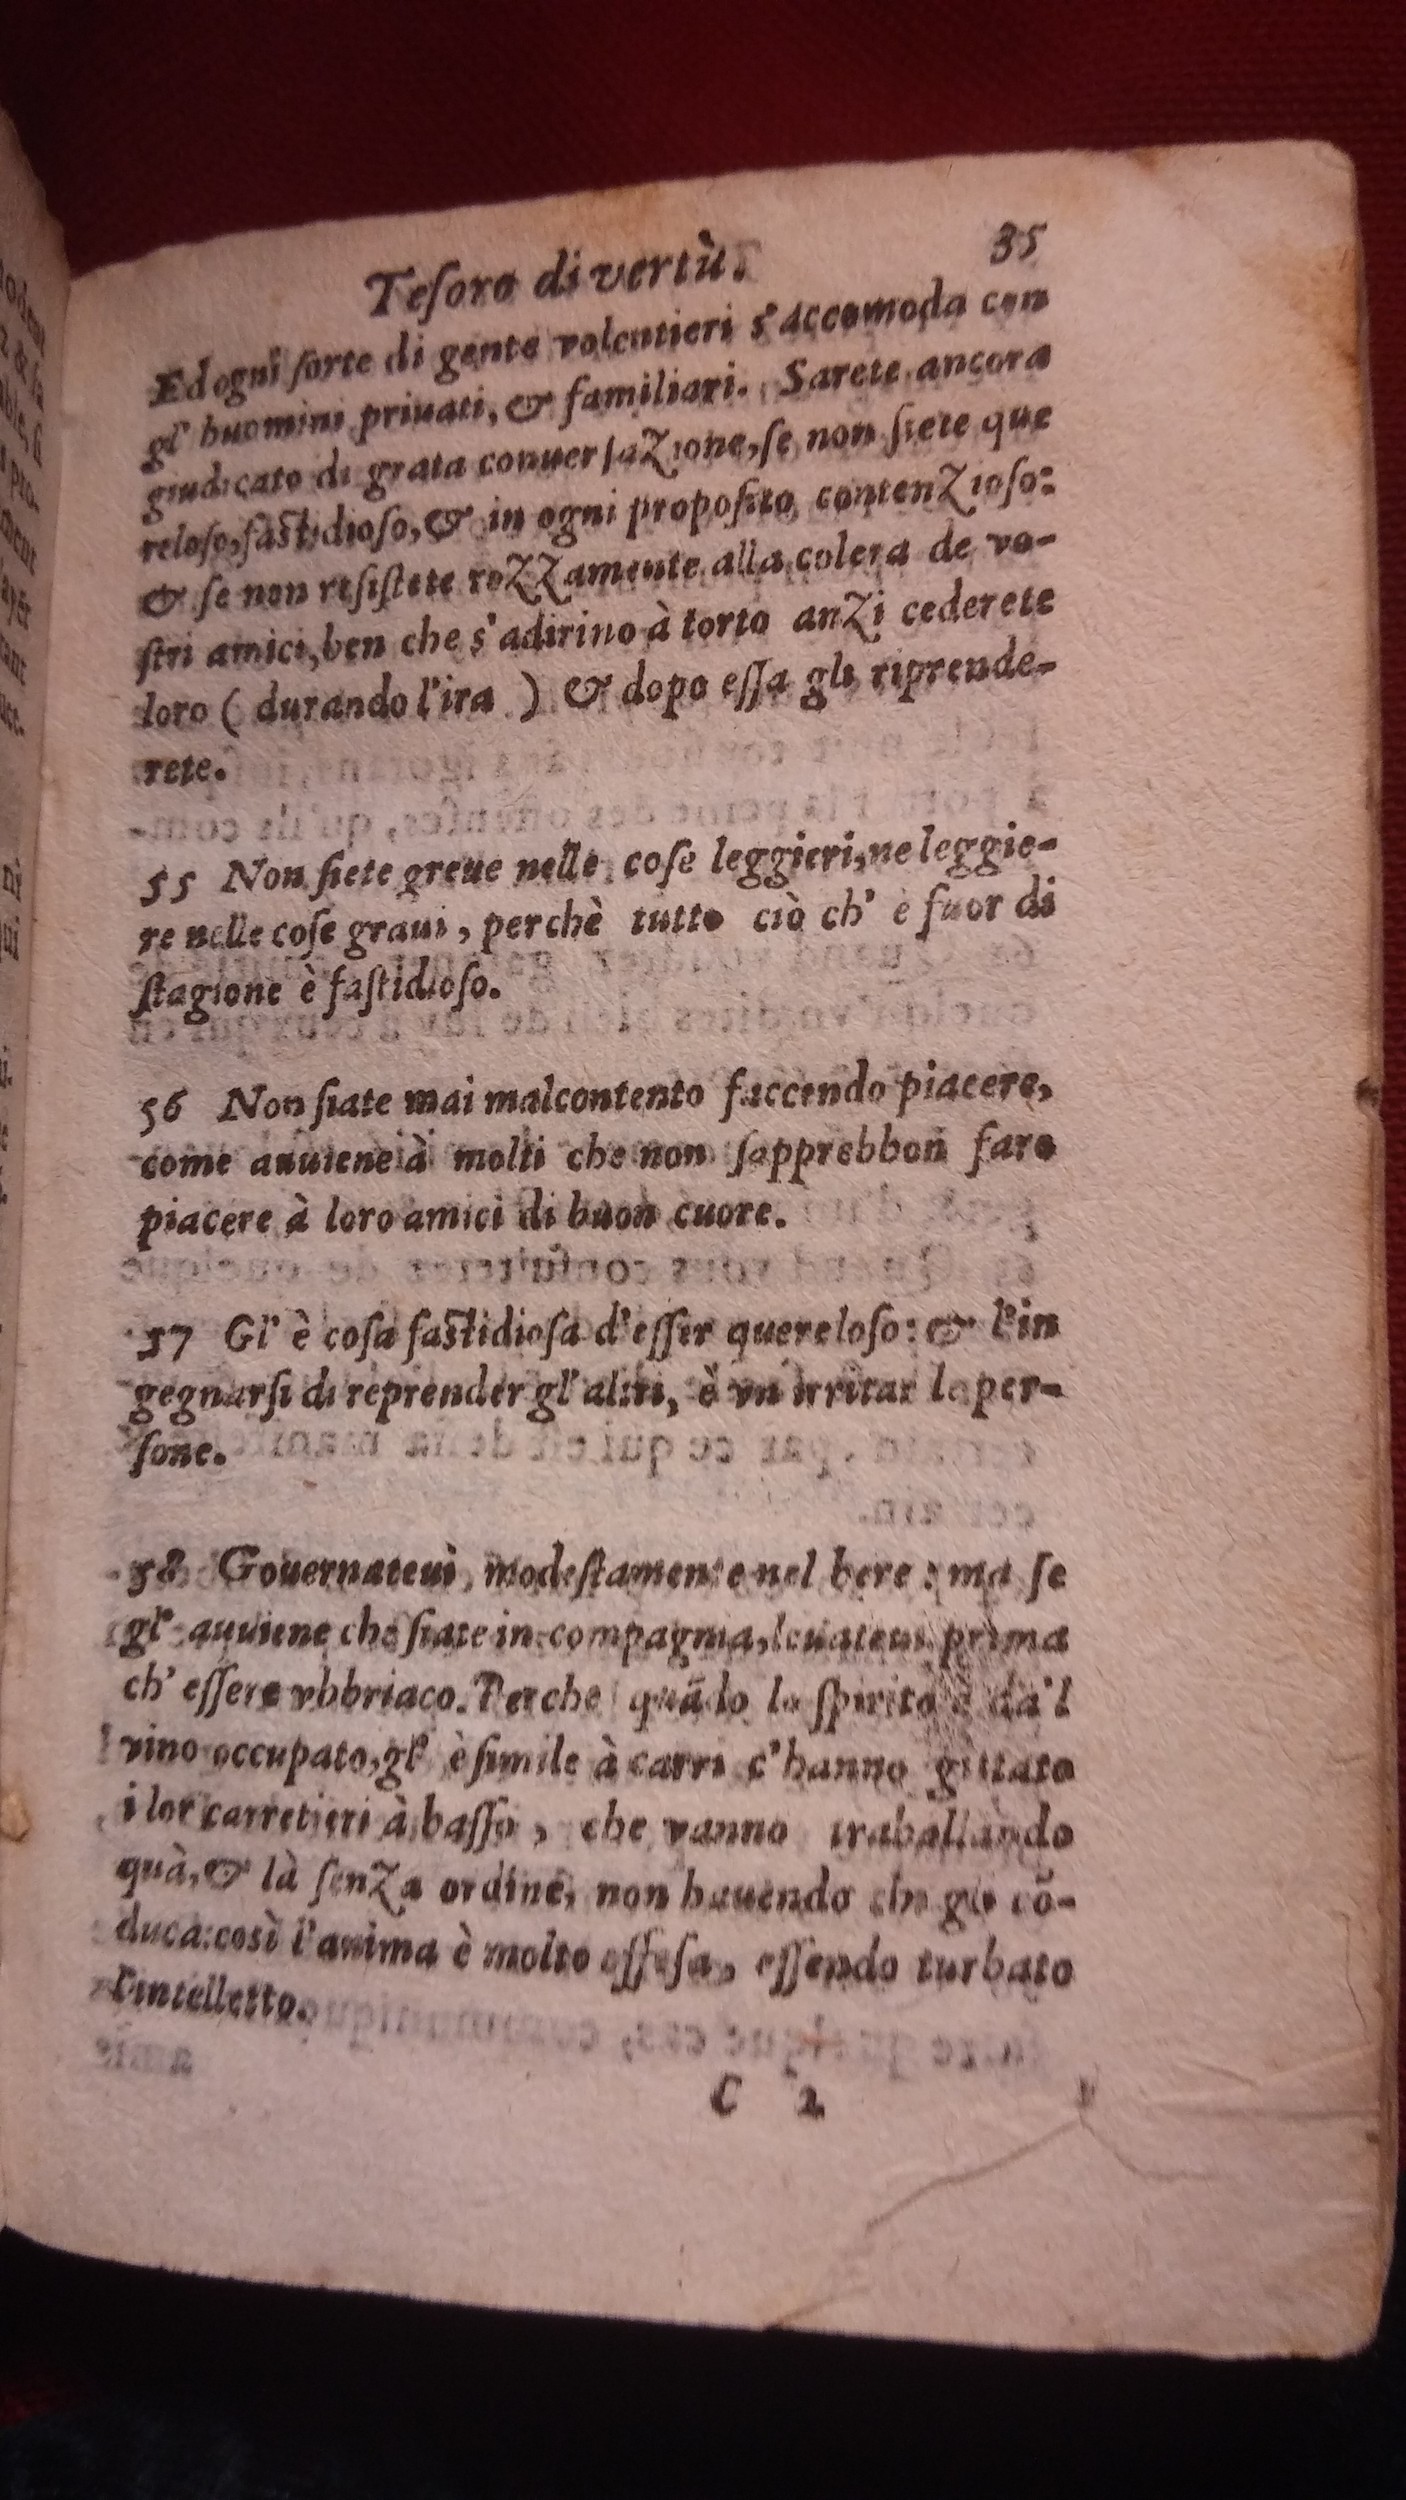 Teſoro di vertù. 35
Ed ogni ſorte di gente volentieri s'accomoda con
gl' huomini priuati, & familiari. Sarete ancora
giudicato di grata conuerſazione, ſe non ſiete que
reloſo, faſtidioſo, & in ogni propoſito contenzioſo:
& ſe non reſiſtete rozzamente alla colera de vo-
ſtri amici, ben che s'adirino à torto anzi cederete
loro ( durando l'ira ) & dopo eſſa gli riprende-
rete.
55 Non ſiete greue nelle coſe leggieri, ne leggie-
re nelle coſe graui, perchè tutto ciò ch' è fuor di
ſtagione è faſtidioſo.
56 Non ſiate mai malcontento faccendo piacere,
come auuiene à molti che non ſapprebbon fare
piacere à loro amici di buon cuore.
57 Gl' è coſa faſtidioſa d'eſſer quereloſo: & l'in
gegnarſi di reprender gl' altri, è vn irritar le per-
ſone.
58 Gouernateui modeſtamente nel bere : ma ſe
gl' auuiene che ſiate in compagnia, leuateui prima
ch' eſſere vbbriaco. Perche quãdo lo ſpirito è da'l
vino occupato, gl' è ſimile à carri c'hanno gittato
i lor carretieri à baſſo, che vanno traballando
quà, & là ſenza ordine, non hauendo chi gli cõ-
duca: così l'anima è molto offeſa, eſſendo turbato
l'intelletto.
C 2